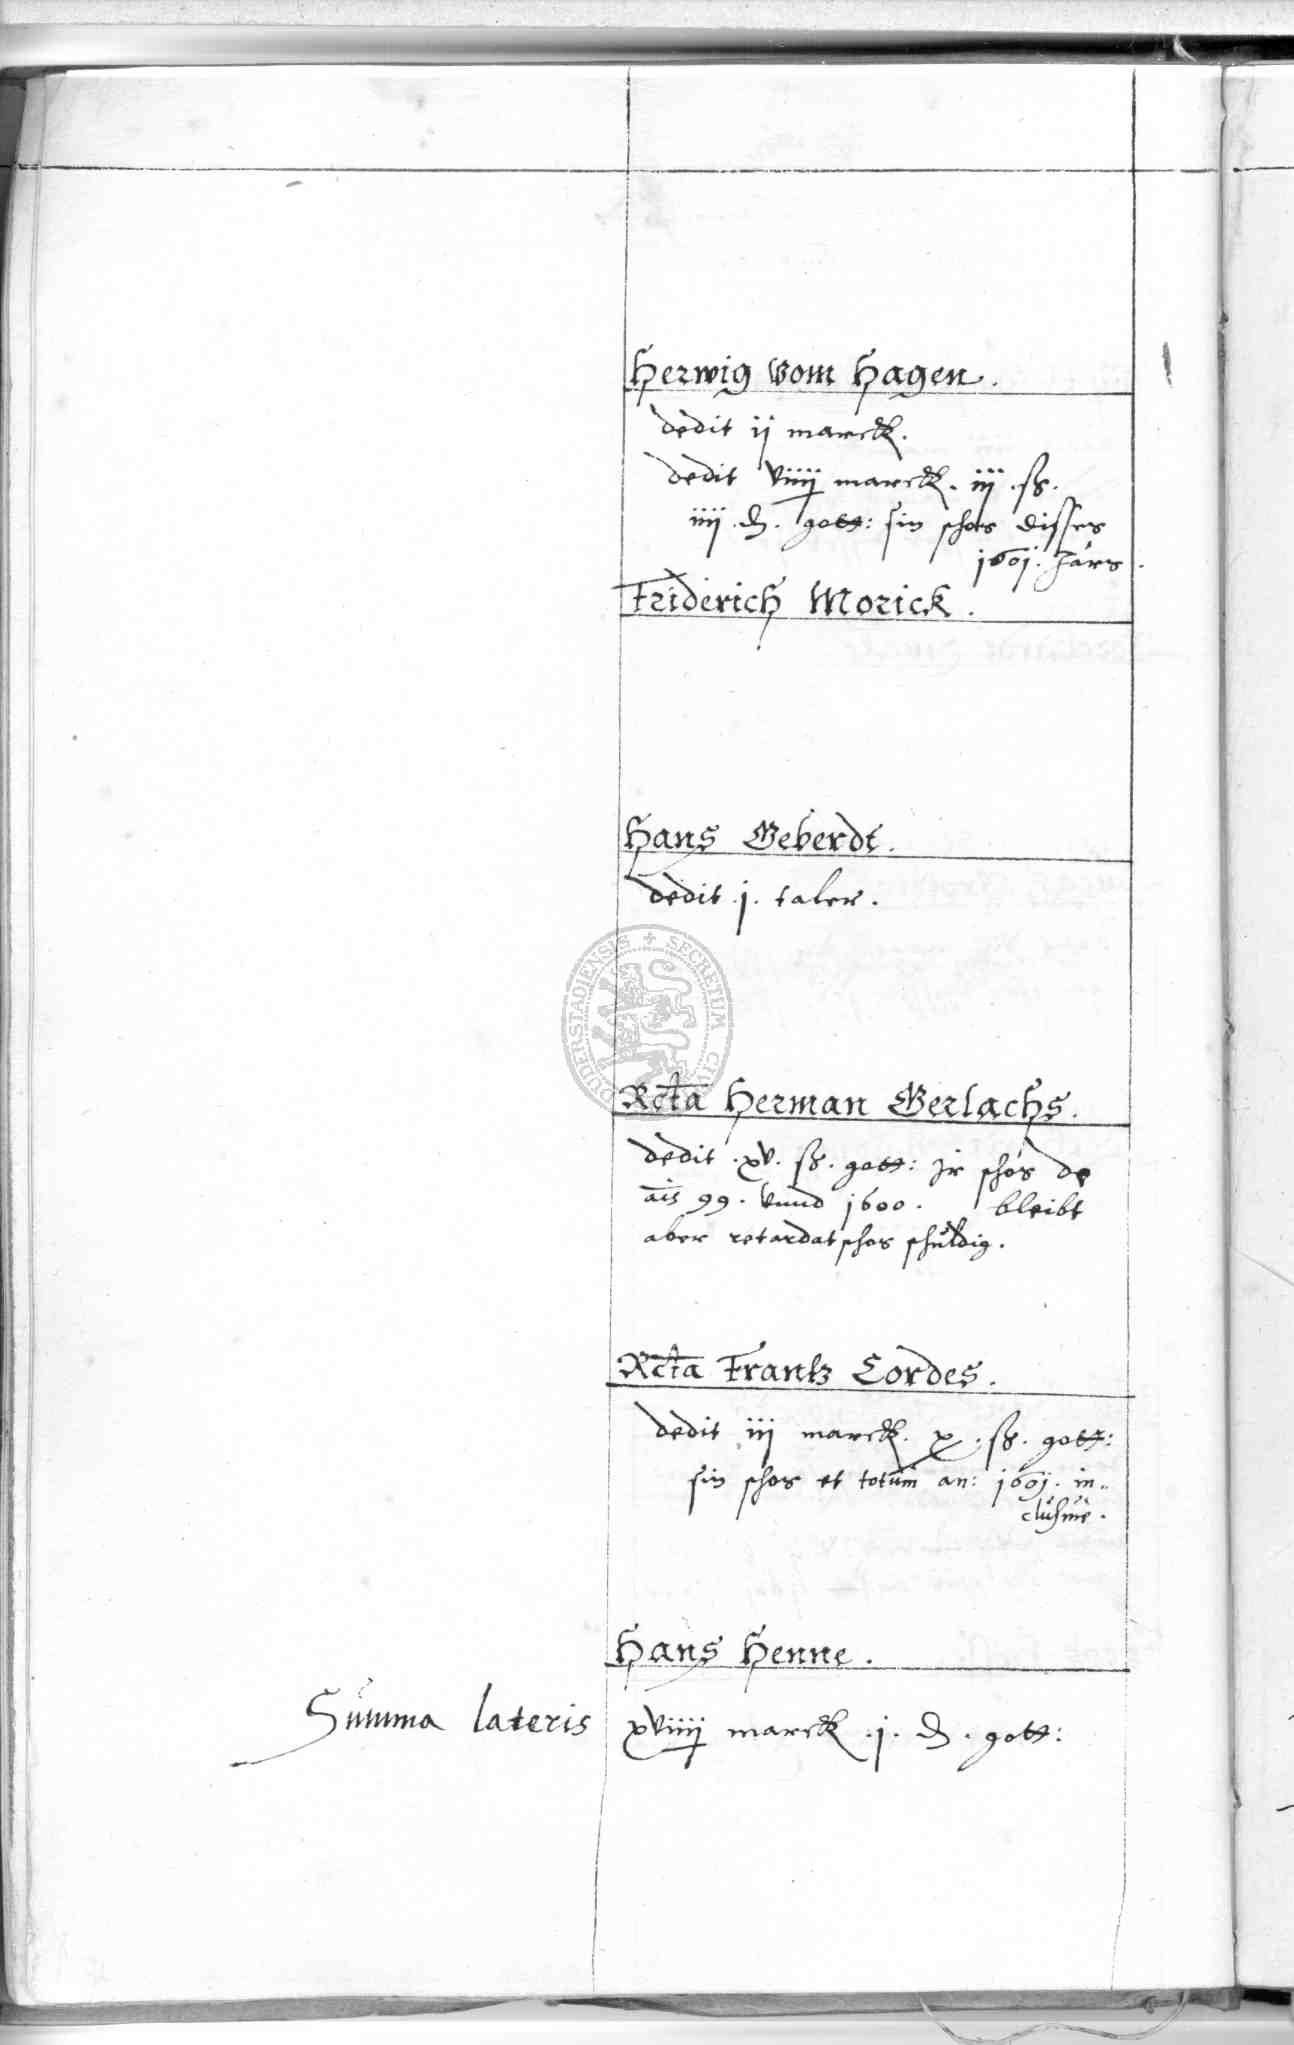 Herwig vom Hagen.
dedit ij marck.
dedit viiij marck. iij. ß.
iiij. d. gott: sin schos disses
1601. Jars.
Friderich Morick.
Hans Geberdt.
dedit .j. taler.
SECRETUM CIVI DUDERSTADIENSIS
Rcta Herman Gerlachs.
dedit .xv. ß. gott: Jr schos de
ais 99. vnnd 1600. bleibt
aber retardat schos schuldig.
Rcta Frantz Cordes.
dedit iij marck. x. ß. gott:
sin schos et totum an: 1601. in-
clusiue.
Hans Henne.
Summa lateris xviiij marck .j. d. gott: